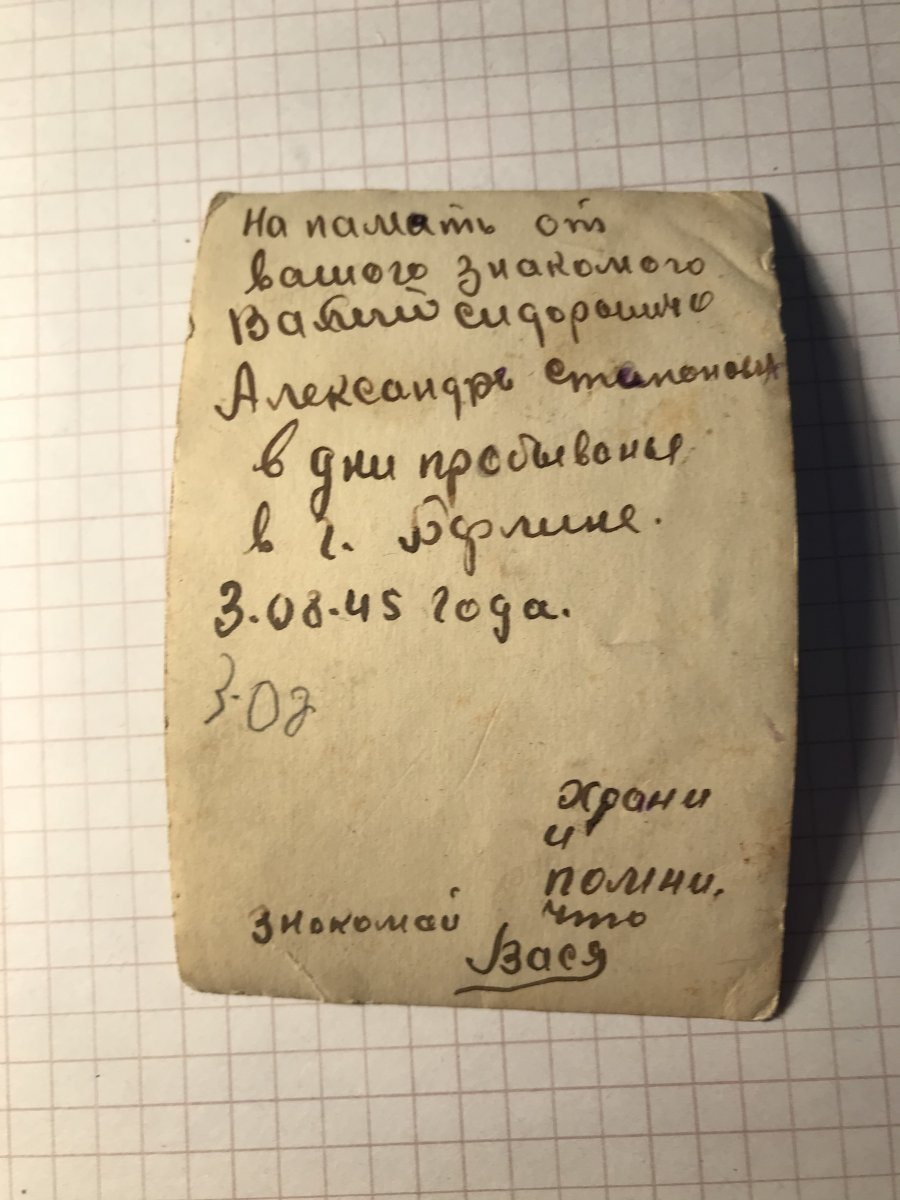 На память от
вашого знакомого
Василий сидорошино
Александръ
в дни пребыванья
в г. Берлине.
3.08.45 года.
3.08
Храни
и
помни,
что
знокомай
Вася